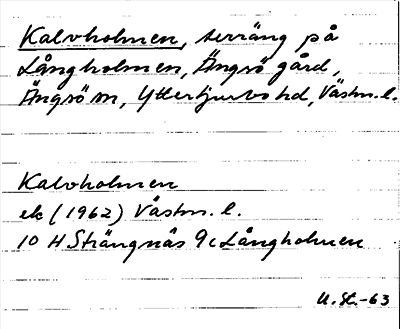 Kalvholmen, terräng på
Långholmen, Ängsö gård,
Ängsö sn, Yttertjurbo hd, Västm. l.
Kalvholmen
ek (1962) Västm. l.
10 H Strängnäs 9c Långholmen
U. St.-63